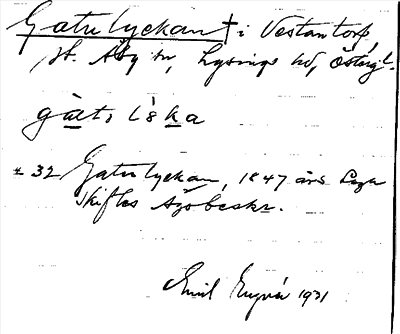 Gatulyckan † i Västantorp,
st. Åby sn, Lysings hd, Östergl.
gàtụ lỳka
± 32 Gatulyckan, 1847 års Laga
Skiftes Ägobeskr.
Emil 1931